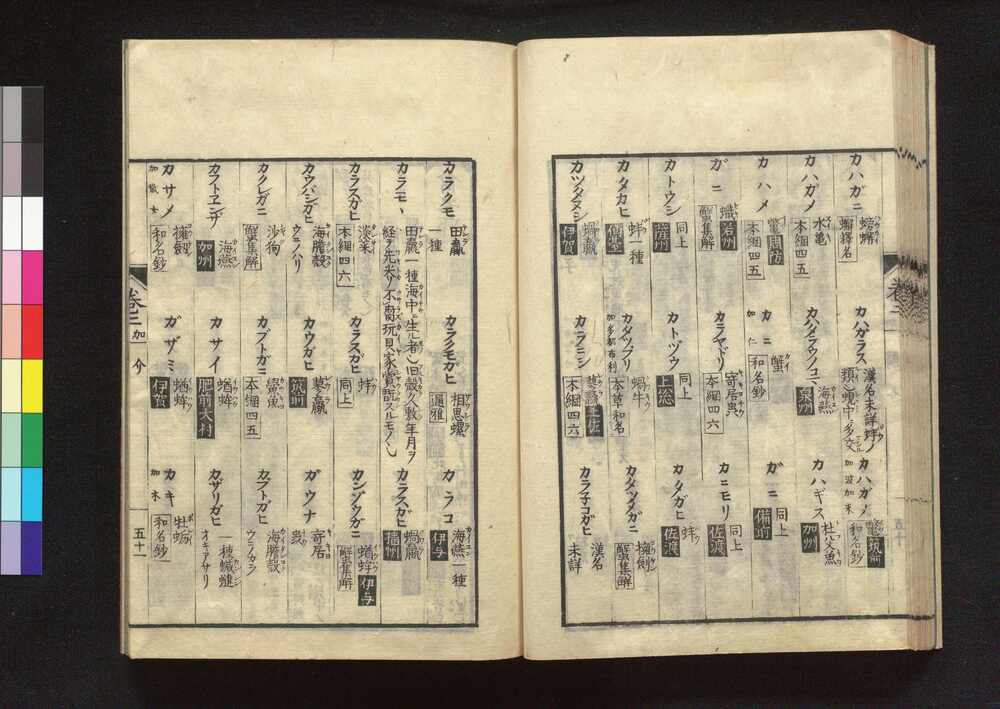 カハガニ 蟛螖 蟹譯名
カハガラス 漢名未詳蚌ノ
カハガメ 加波加米 鼈 筑前 和名鈔
カハガメ 水亀 本綱四五
カハタラウノコ 海燕 泉州
カハギス 杜父魚 加州
カハメ 鼈 周防 本綱四五
カニ 加仁 蟹 和名鈔
ガニ 同上 備前
ガニ 蟙 若州 蟹集解
カラヤドリ 寄居虫 本綱四六
カニモリ 同上 佐渡
カトウシ 同上 薩州
カトヅウ 同上 上総
カタガヒ 蚌 佐渡
カタカヒ 蚌一種 備芸
カタツブリ 加多都布利 蝸牛 本草和名
カタツメガニ 擁劍 蟹集解
カツタタシ 蝸蠃 伊賀
カラニシ 蓼蠃 土佐 本綱四六
カラ子コガヒ 漢名未詳
カラクモ 田蠃一種
カラクモガヒ 相思螺 通雅
カラコ 海燕一種 伊与
カラモヽ 田蠃一種海中ニ生ル者也旧殻久敷年月ヲ
経ヲ光米ノ不腐玩貝家賞翫スルモノ也
カラスガヒ 蝸蠃 福州
カラスガヒ 淡菜 本綱四六
カラスガヒ 蚌 同上
カンゾウガニ 蝤蛑 伊与 蟹集解
カウバシガヒ 海膽殻 ウニノハリ
カウガヒ 蓼蠃 筑前
ガウナ 寄居
カクレガニ 沙狗 蟹集解
カブトガニ 鱟魚 本綱四五
カブトガヒ 海膽殻 ウニノカラ
カフトヱンザ 海燕 加州
カサイ 蝤蛑 肥前大村
カザリガヒ 一種 オキアサリ
カサメ 加散女 擁劍 和名鈔
ガザミ 蝤蛑 伊賀
カキ 加木 牡蛎 和名鈔
巻二 加 介 五十一